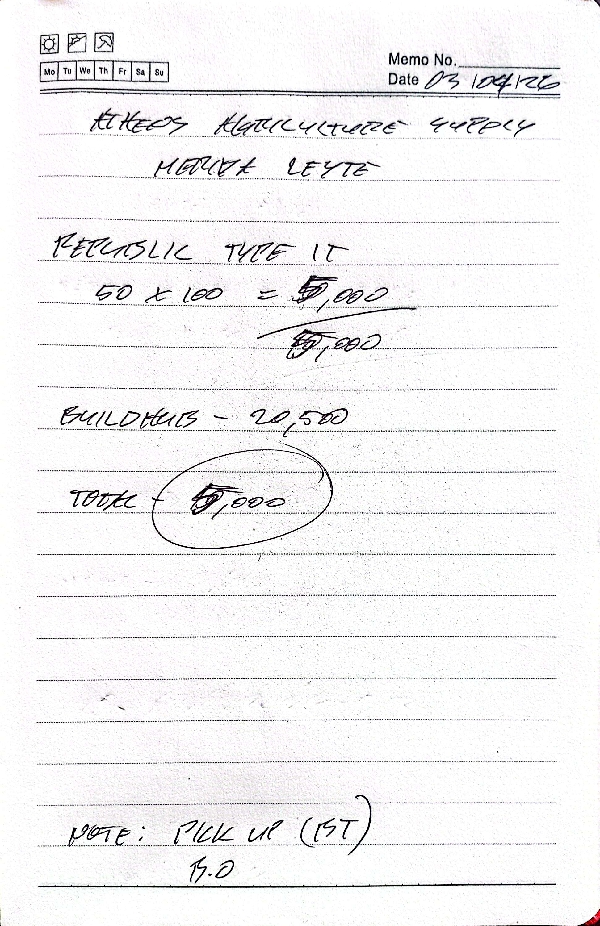 Mo Tu We Th Fr Sa Su
Memo No.
Date 03/04/26
AGRICULTURE SUPPLY
MERIDA LEYTE
REPUBLIC TYPE 1T
50 x 100 = 5,000
5,000
BUILDHUB - 20,500
TOTAL - 5,000
NOTE: PICK UP (BT)
B.O